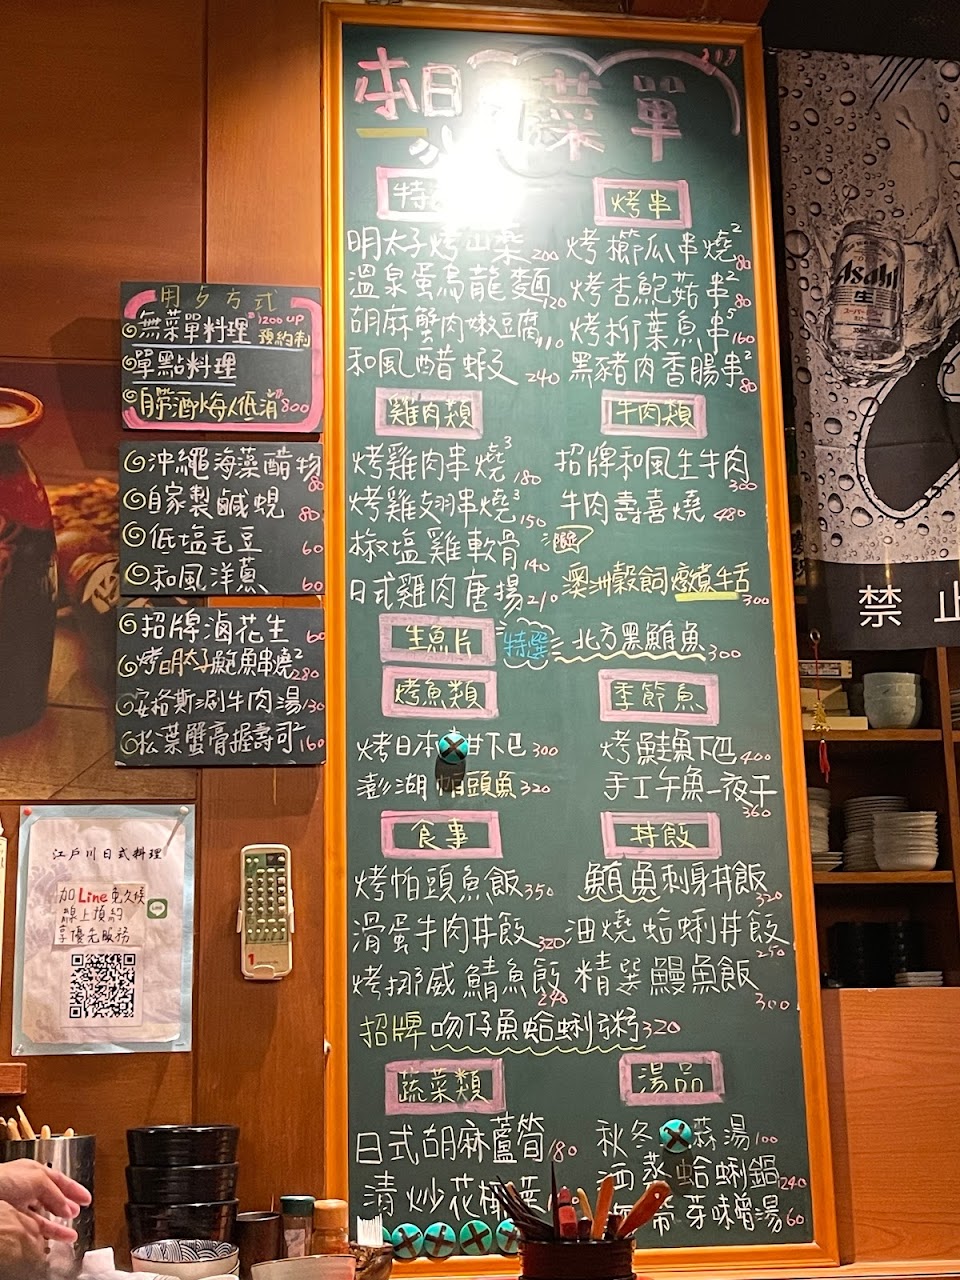 本日菜單
特
明太子烤山藥 200
溫泉蛋烏龍麵 120
胡麻蟹肉嫩豆腐 110
和風醋蝦 240
烤串
烤櫛瓜串燒2 80
烤杏鮑菇串2 80
烤柳葉魚串5 160
黑豬肉香腸串2 80
雞肉類
烤雞肉串燒3 180
烤雞翅串燒3 150
椒塩雞軟骨 140
日式雞肉唐揚 210
牛肉類
招牌和風生牛肉 300
牛肉壽喜燒 480
澳洲穀飼燉煮牛舌 300
生魚片
特選
北方黑鮪魚 300
烤魚類
烤日本 下巴 300
澎湖 帕頭魚 320
季節魚
烤鮭魚下巴 400
手工午魚一夜干 360
食事
烤帕頭魚飯 350
滑蛋牛肉丼飯 320
烤挪威鯖魚飯 240
招牌吻仔魚蛤蜊粥 320
丼飯
鮪魚刺身丼飯 320
油燒蛤蜊丼飯 250
精選鰻魚飯 300
蔬菜類
日式胡麻蘆筍 180
清炒花椰菜
湯品
秋冬 蒜湯 100
酒蒸蛤蜊鍋 240
芽味噌湯 60
用夕方式
無菜單料理 1200 up 預約制
單點料理
自帶酒每人低消 800
沖繩海藻醋物 80
自家製鹹蜆 80
低塩毛豆 60
和風洋蔥 60
招牌滷花生 60
烤明太子鮑魚串燒2 280
安格斯涮牛肉湯 130
松葉蟹膏握壽司2 160
江戶川日式料理
加 Line 免久候
線上預約
享優先服務
Asahi
生
禁止